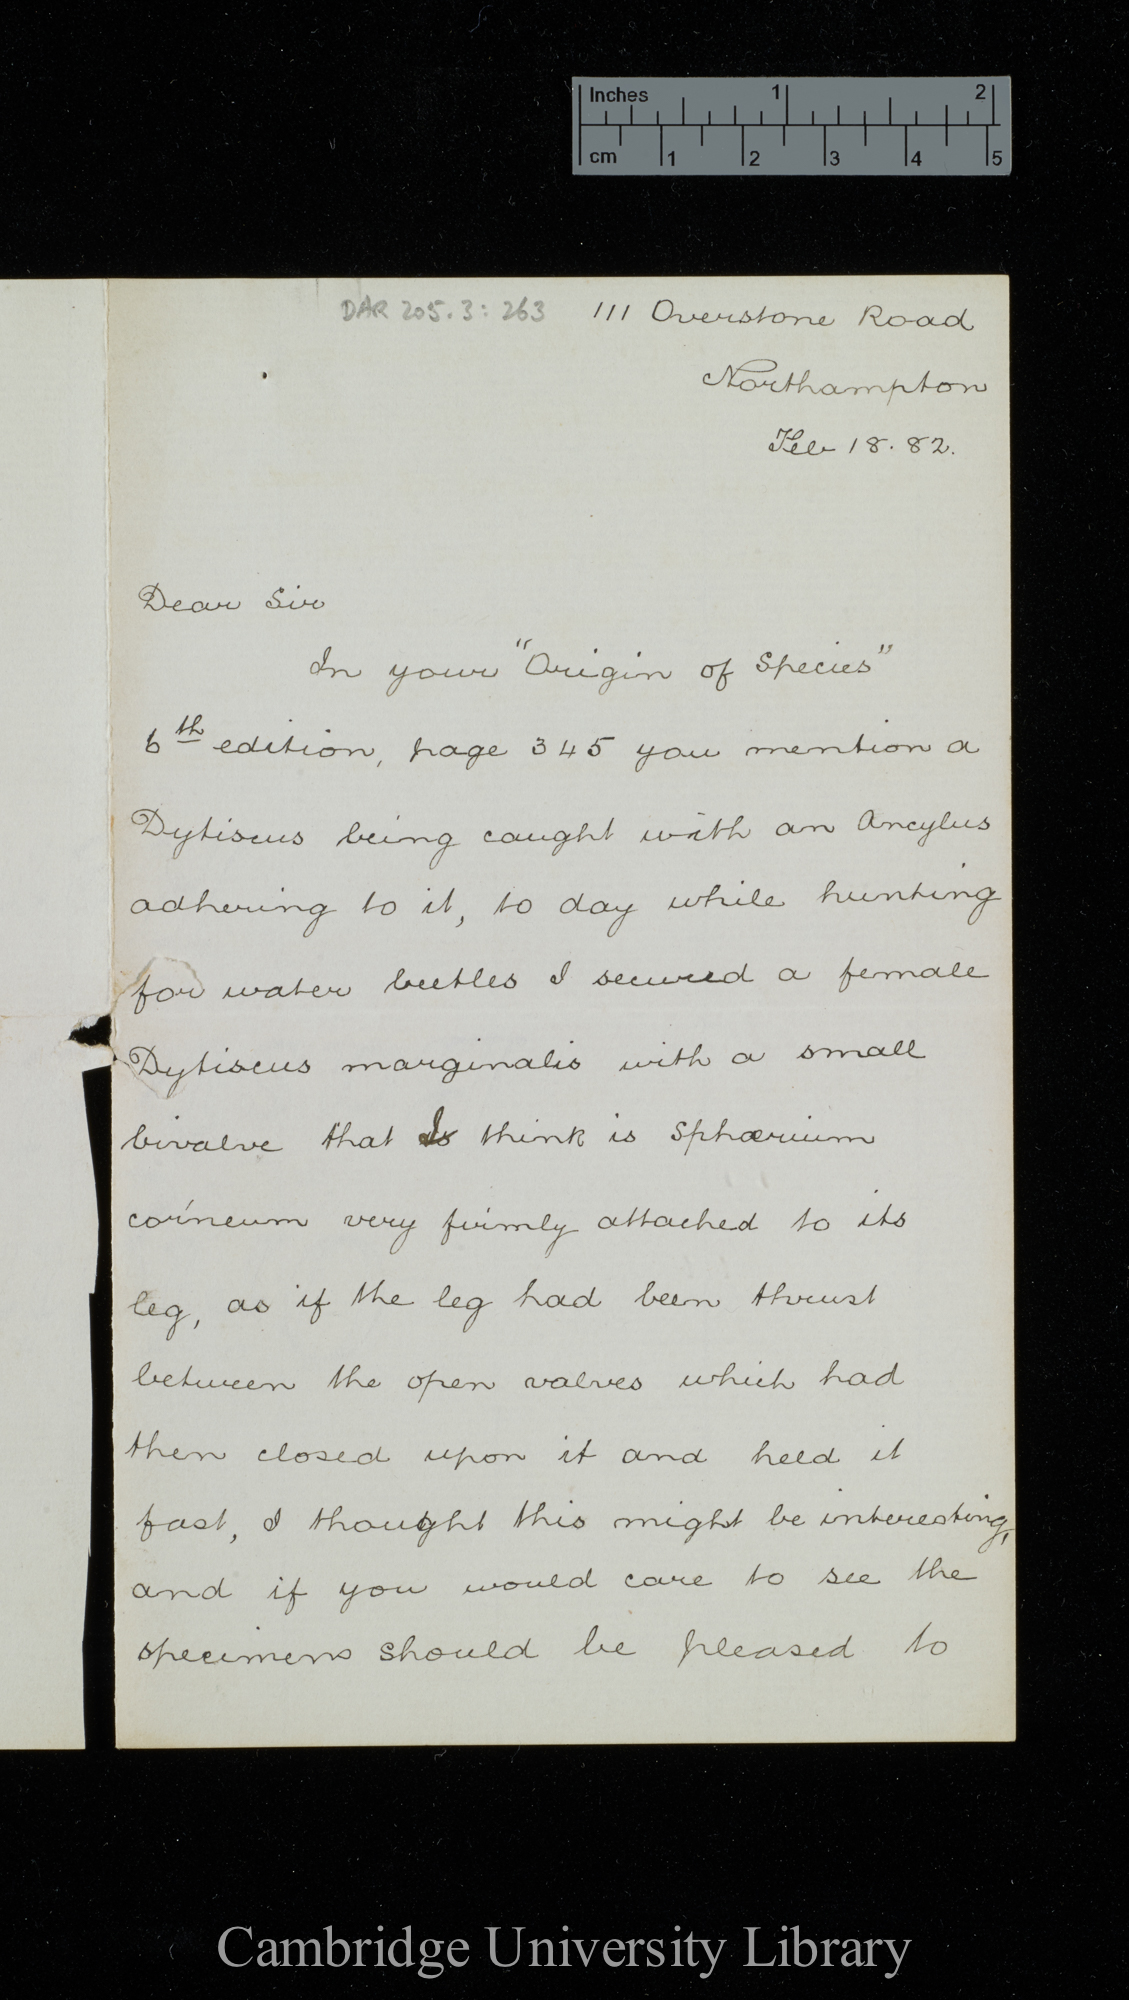 Inches 1 2
cm 1 2 3 4 5
DAR 205.3: 263
111 Overstone Road
Northampton
Feb 18. 82.
Dear Sir
In your "Origin of Species"
6th edition, page 345 you mention a
Dytiscus being caught with an Ancylus
adhering to it, to day while hunting
for water beetles I secured a female
Dytiscus marginalis with a small
bivalve that I think is Sphærium
corneum very firmly attached to its
leg, as if the leg had been thrust
between the open valves which had
then closed upon it and held it
fast, I thought this might be interesting,
and if you would care to see the
specimens should be pleased to
Cambridge University Library